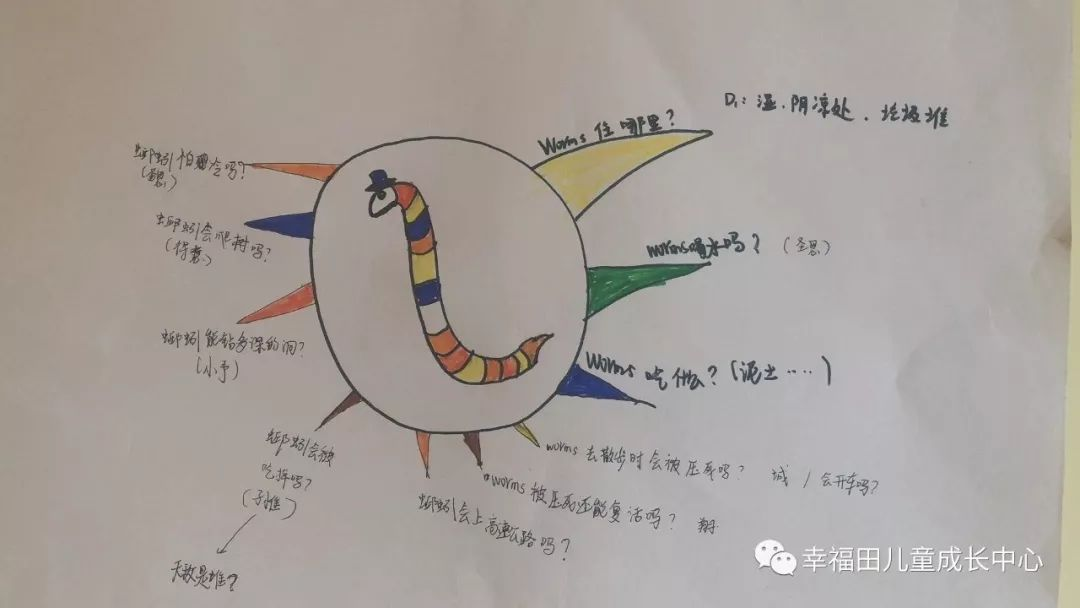 Worms 住哪里？
D1：湿、阴凉处、垃圾堆
worms喝水吗？（圣恩）
Worms 吃什么？（泥土……）
worms 去散步时会被压死吗？ 城 / 会开车吗？
worms 被压死还能复活吗？ 翔
蚯蚓会上高速公路吗？
蚯蚓会被
吃掉吗？
（子惟）
天敌是谁？
蚯蚓能钻多深的洞？
（小予）
蚯蚓会爬树吗？
蚯蚓怕冷吗？
幸福田儿童成长中心